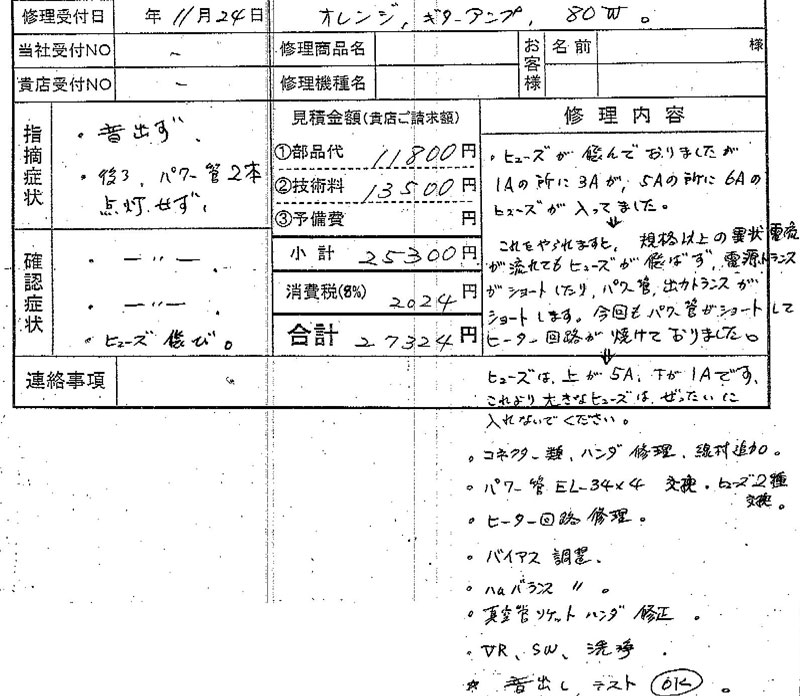 修理受付日 年 11月24日 オレンジ、ギターアンプ、80W。
当社受付NO ~ 修理商品名 お客様 名前 様
貴店受付NO ~ 修理機種名
指摘症状
・音出ず、
・後3、パワー管2本
点灯せず、
見積金額(貴店ご請求額)
①部品代 11800円
②技術料 13500円
③予備費 円
小計 25300円
消費税(8%) 2024円
合計 27324円
確認症状
・ー〃ー 。
・ー〃ー 。
・ヒューズ飛び。
連絡事項
修理内容
・ヒューズが飛んでおりましたが
1Aの所に3Aが、5Aの所に6Aの
ヒューズが入ってました。
↓
これをやられますと、規格以上の異状電流
が流れてもヒューズが飛ばず、電源トランス
がショートしたり、パワー管、出力トランスが
ショートします。今回もパワー管がショートして
ヒーター回路が焼けておりました。
↓
ヒューズは、上が5A、下が1Aです、
これより大きなヒューズは、ぜったいに
入れないでください。
・コネクター類、ハンダ修理、線材追加。
・パワー管EL-34×4 交換、ヒューズ2種
交換。
・ヒーター回路修理。
・バイアス調整、
・バランス 〃 。
・真空管ソケットハンダ修正 。
・VR、SW、洗浄 .
* 音出し、テスト OK 。